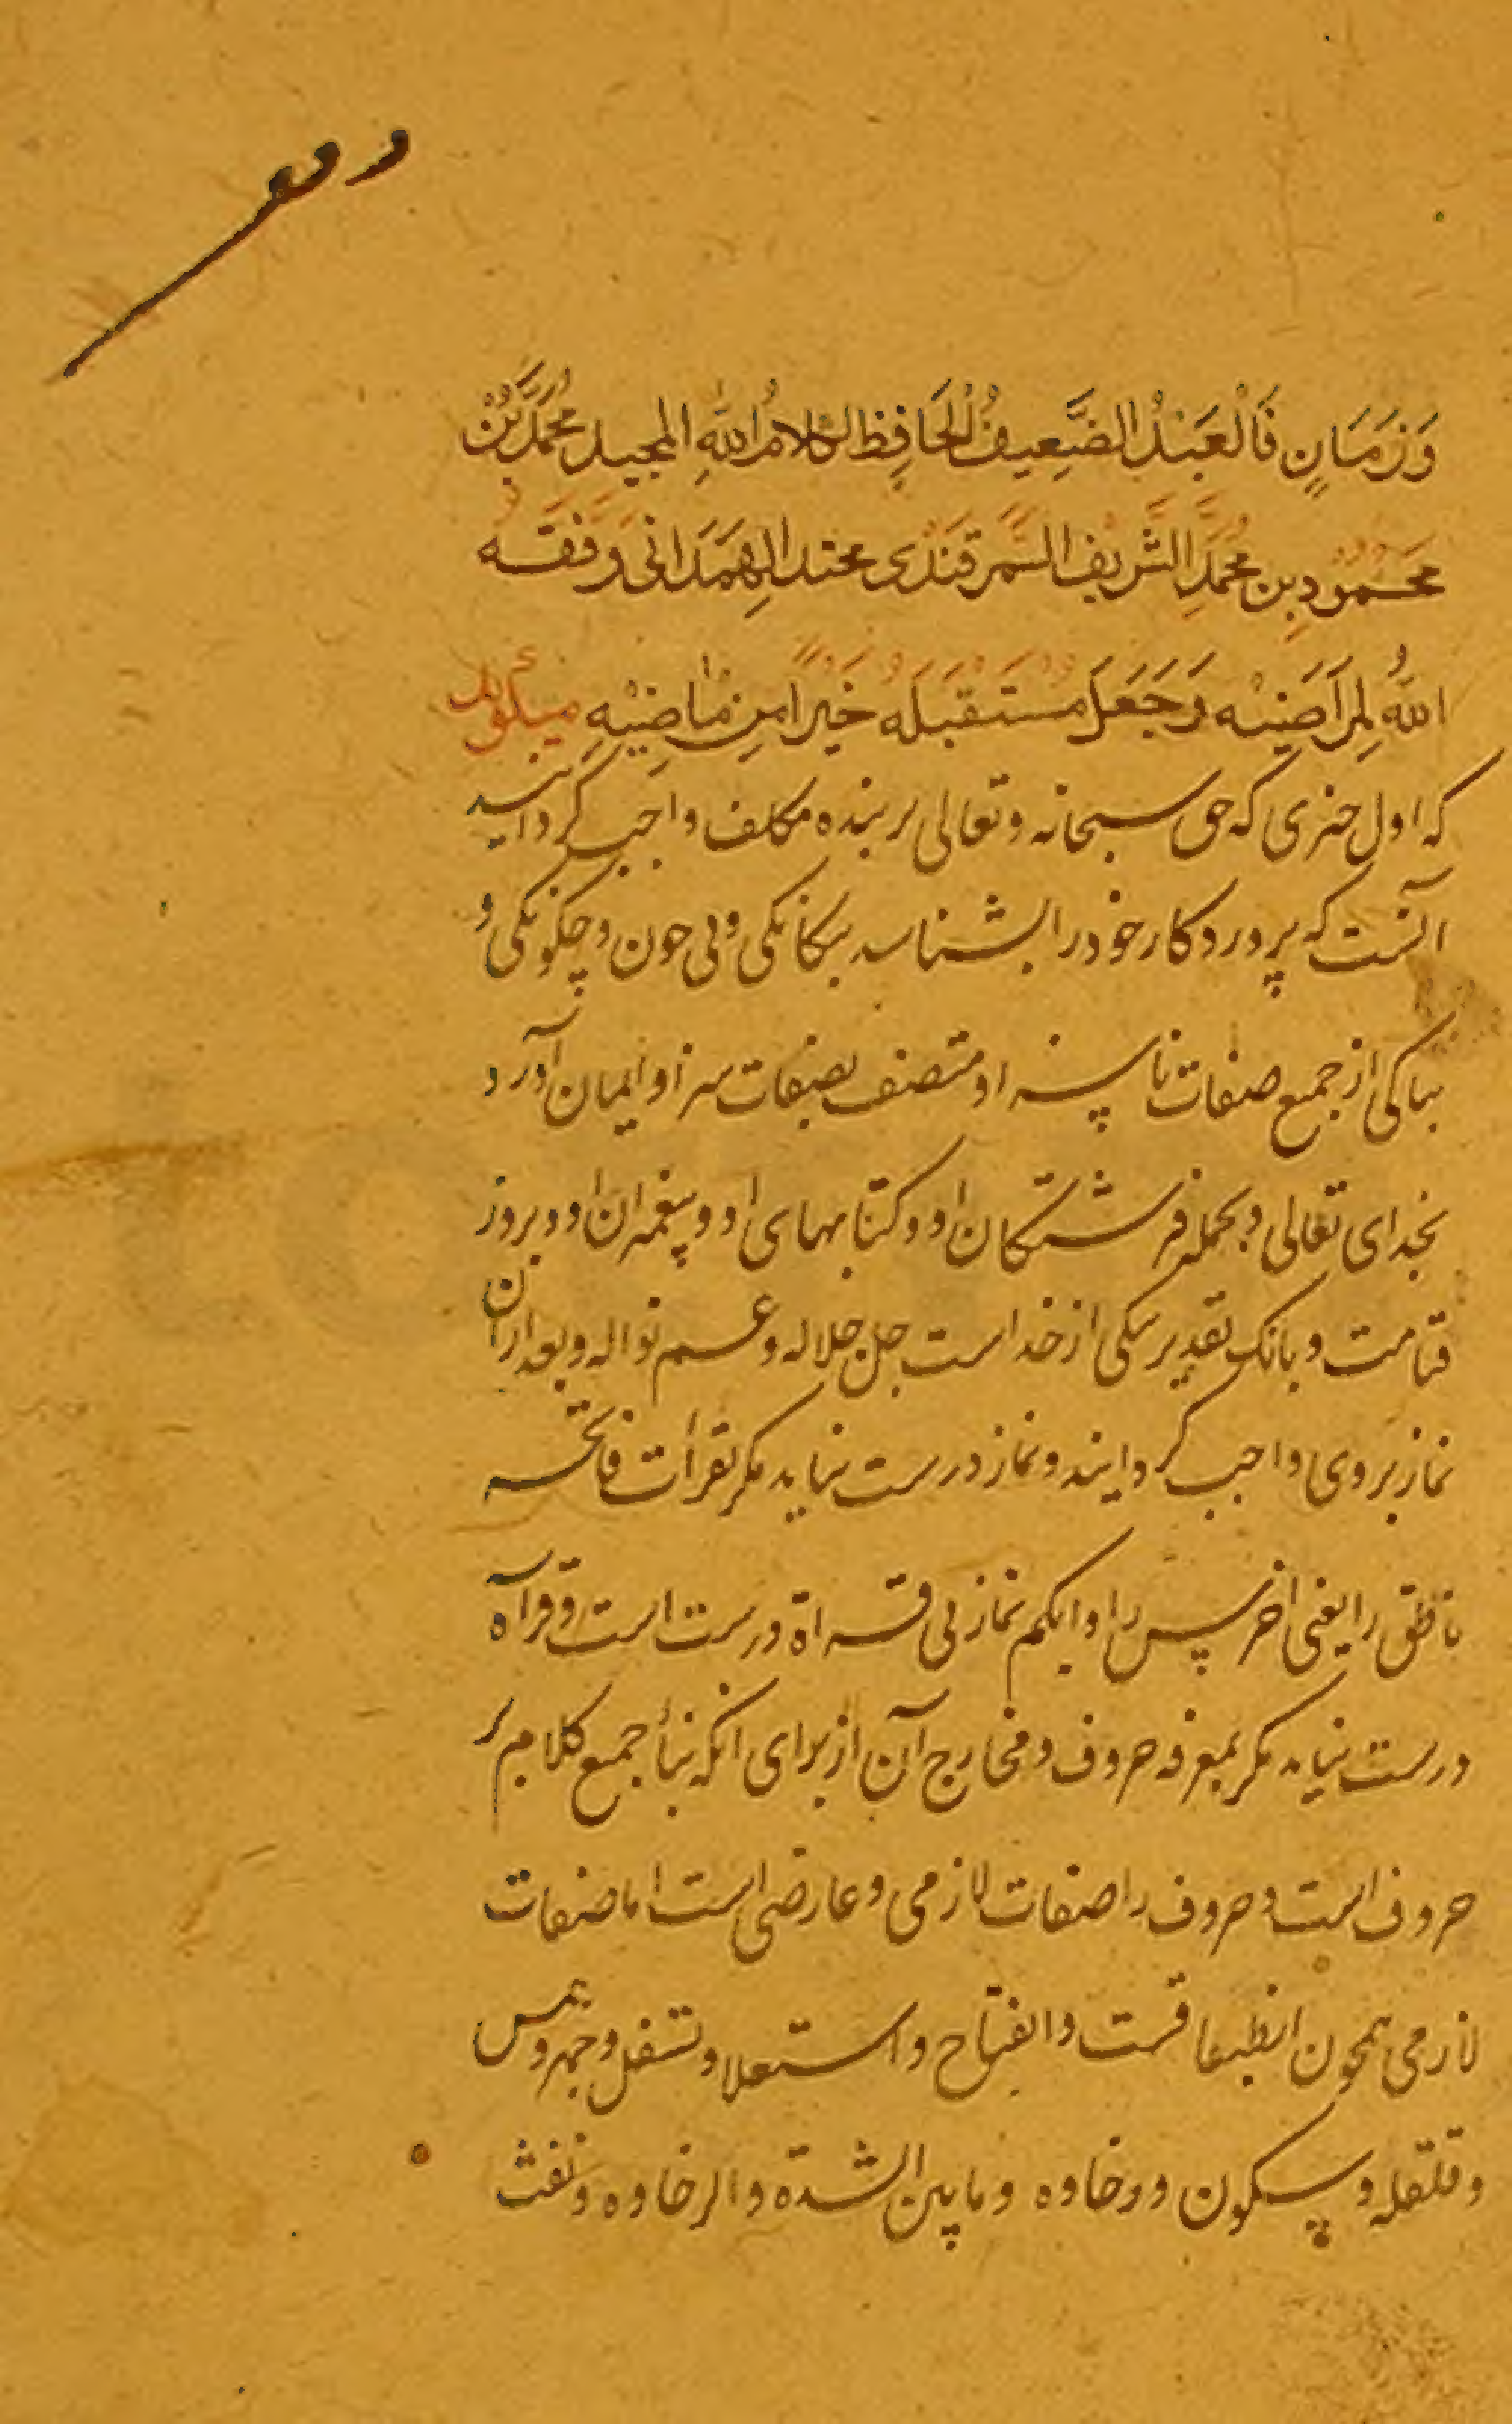 وَزَمَانٍ فَالْعَبْدُ الضَّعِيفُ الْحَافِظ لکلام اللهِ المجید مُحَمَّدُ بْنُ
مَحْمُودِ بنِ مُحَمَّدِ الشَّرِیْف السَّمَرقَنْدی محتد الهَمَدَانی وَفَّقَهُ
اللهُ لِمَرَاضِیْه وَجَعَلَ مُسْتَقْبَلَهُ خَیْرًا مِنْ مَاضِیْهِ میگوید
که اول چیزی که حق سبحانه وتعالی بر بنده مکلف واجب کردانید
آنست که پروردکار خود را بشناسد بیکانکی وبی چون وچکونکی و
بپاکی از جمیع صفات ناپسزا و متصف بصفات سزا و ایمان آورد
بخدای تعالی و بجمله فرشتکان او و کتابهای او و پیغمبران او و بروز
قیامت و بانک تقدیر نیکی از خداست جل جلاله وعم نواله وبعد ازان
نماز بروی واجب کردانید ونماز درست نیاید مکر بقرات فاتحه
ناطق را یعنی اخرس را و ابکم نماز بی قراة درست است وقراة
درست نیاید مکر بمعرفه حروف ومخارج آن از برای انکه بناء جمیع کلام بر
حروف است وحروف را صفات لازمی وعارضی است اما صفات
لازمی همچون انطباقست وانفتاح واستعلا وتسفل وجهر وهمس
وقلقله وسکون ورخاوه وما بین الشدة والرخاوه ونفث